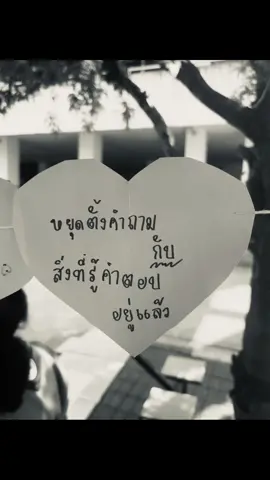 หยุดตั้งคำถาม
กับ
สิ่งที่รู้คำตอบ
อยู่แล้ว